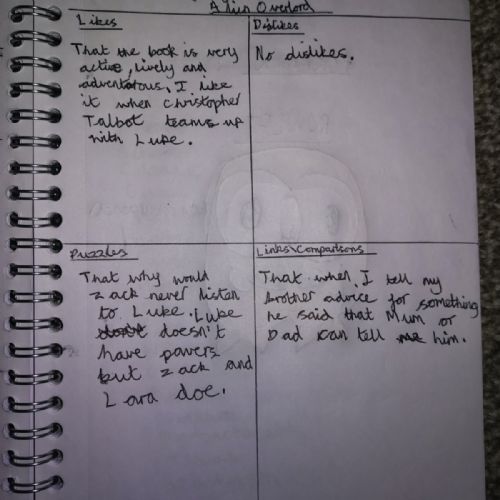 Alien Overlord
Likes
That the book is very
active, lively and
adventorous, I like
it when Christopher
Talbot teams up
with Luke.
Dislikes
No dislikes.
Puzzles
That why would
Zack never listen
to Luke. Luke
doesn't
have powers
but Zack and
Lara doe.
Links\Comparisons
That when I tell my
brother advice for something
he said that Mum or
Dad can tell him.